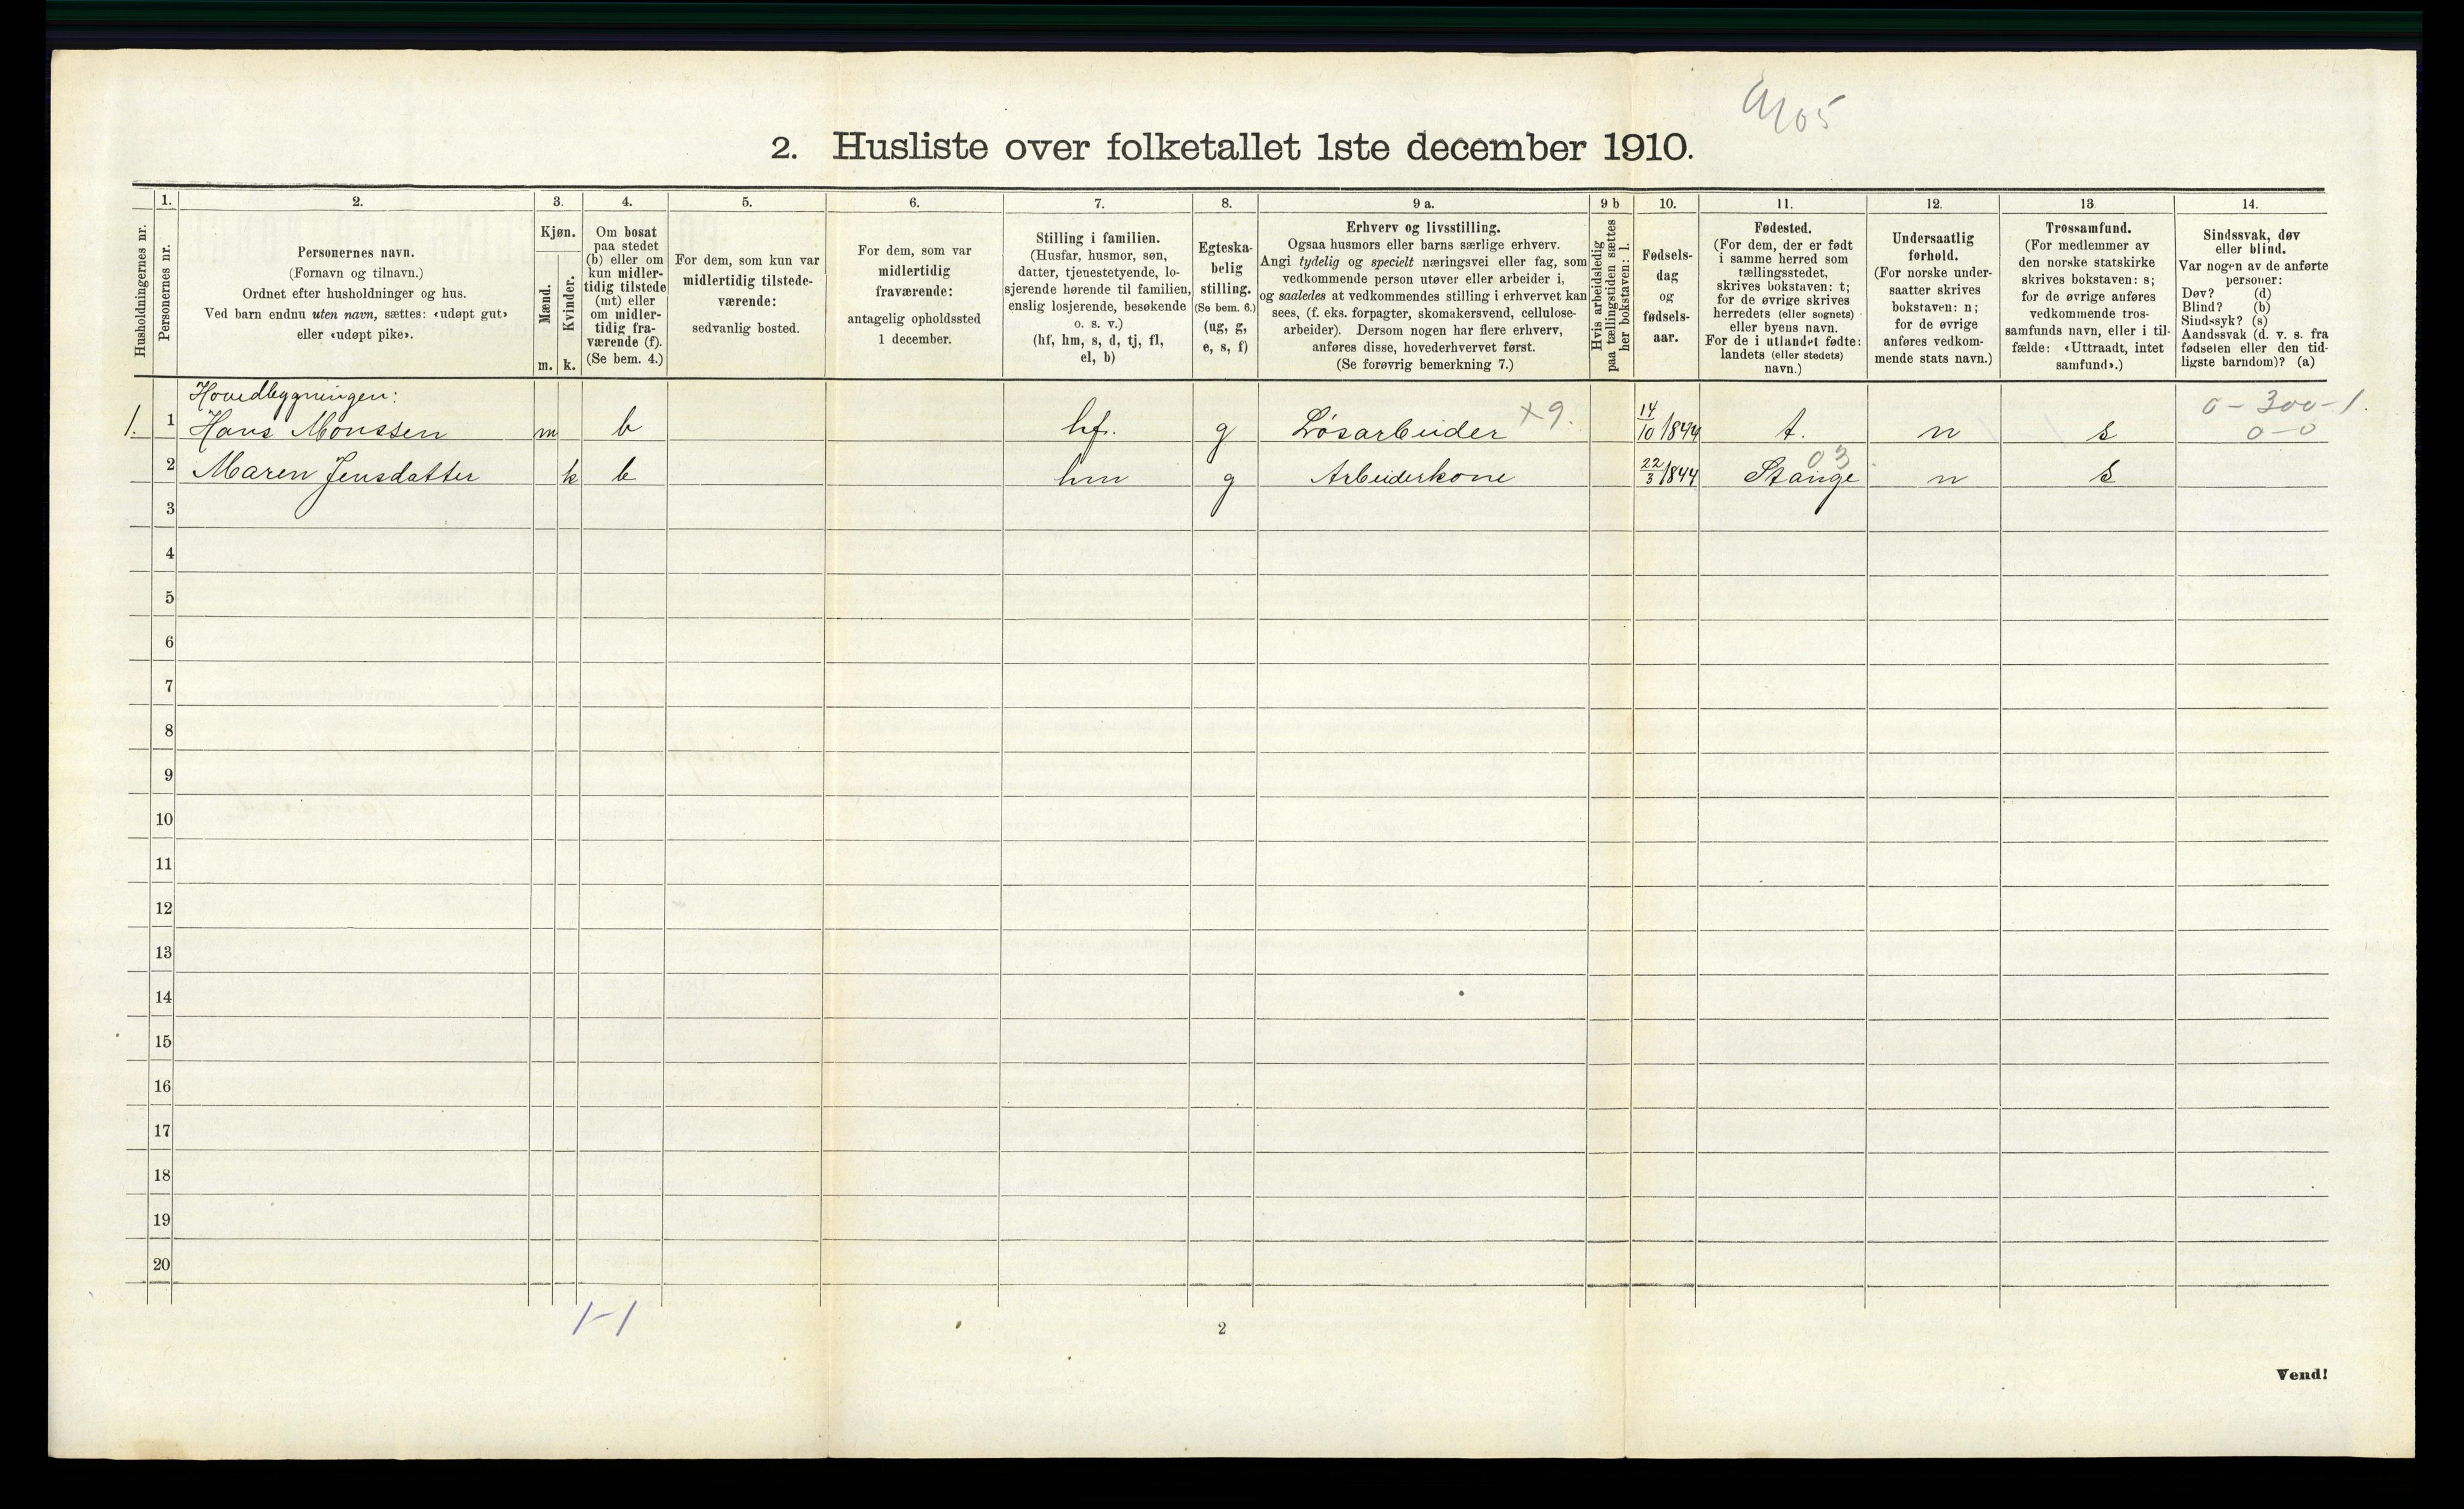 2. Husliste over folketallet 1ste december 1910.
Husholdningernes nr.
1.
Personernes nr.
2.
Personernes navn.
(Fornavn og tilnavn.)
Ordnet efter husholdninger og hus.
Ved barn endnu uten navn, sættes: «udøpt gut»
eller «udøpt pike».
3.
Kjøn.
Mænd.
m.
Kvinder.
k.
4.
Om bosat
paa stedet
(b) eller om
kun midler-
tidig tilstede
(mt) eller
om midler-
tidig fra-
værende (f).
(Se bem. 4.)
5.
For dem, som kun var
midlertidig tilstede-
værende:
sedvanlig bosted.
6.
For dem, som var
midlertidig
fraværende:
antagelig opholdssted
1 december.
7.
Stilling i familien.
(Husfar, husmor, søn,
datter, tjenestetyende, lo-
sjerende hørende til familien,
enslig losjerende, besøkende
o. s. v.)
(hf, hm, s, d, tj, fl,
el, b)
8.
Egteska-
belig
stilling.
(Se bem. 6.)
(ug, g,
e, s, f)
9 a.
Erhverv og livsstilling.
Ogsaa husmors eller barns særlige erhverv.
Angi tydelig og specielt næringsvei eller fag, som
vedkommende person utøver eller arbeider i,
og saaledes at vedkommendes stilling i erhvervet kan
sees, (f. eks. forpagter, skomakersvend, cellulose-
arbeider). Dersom nogen har flere erhverv,
anføres disse, hovederhvervet først.
(Se forøvrig bemerkning 7.)
9 b
Hvis arbeidsledig
paa tællingstiden sættes
her bokstaven: l.
10.
Fødsels-
dag
og
fødsels-
aar.
11.
Fødested.
(For dem, der er født
i samme herred som
tællingsstedet,
skrives bokstaven: t;
for de øvrige skrives
herredets (eller sognets)
eller byens navn.
For de i utlandet fødte:
landets (eller stedets)
navn.)
12.
Undersaatlig
forhold.
(For norske under-
saatter skrives
bokstaven: n;
for de øvrige
anføres vedkom-
mende stats navn.)
13
Trossamfund.
(For medlemmer av
den norske statskirke
skrives bokstaven: s;
for de øvrige anføres
vedkommende tros-
samfunds navn, eller i til-
fælde: «Uttraadt, intet
samfund».)
14.
Sindssvak, døv
eller blind.
Var nogen av de anførte
personer:
Døv? (d)
Blind? (b)
Sindssyk? (s)
Aandssvak (d. v. s. fra
fødselen eller den tid-
ligste barndom)? (a)
Hovedbygningen: 0 - 300 - 1.
1. 1 Hans Monssen m b hf. g Løsarbeider x9. 14/10 1844 t. n s 0 - 0
03
2 Maren Jensdatter k b hm g Arbeiderkone 22/3 1844 Stange n s
3
4
5
6
7
8
9
10
11
12
13
14
15
16
17
18
19
20
1-1
2
Vend!